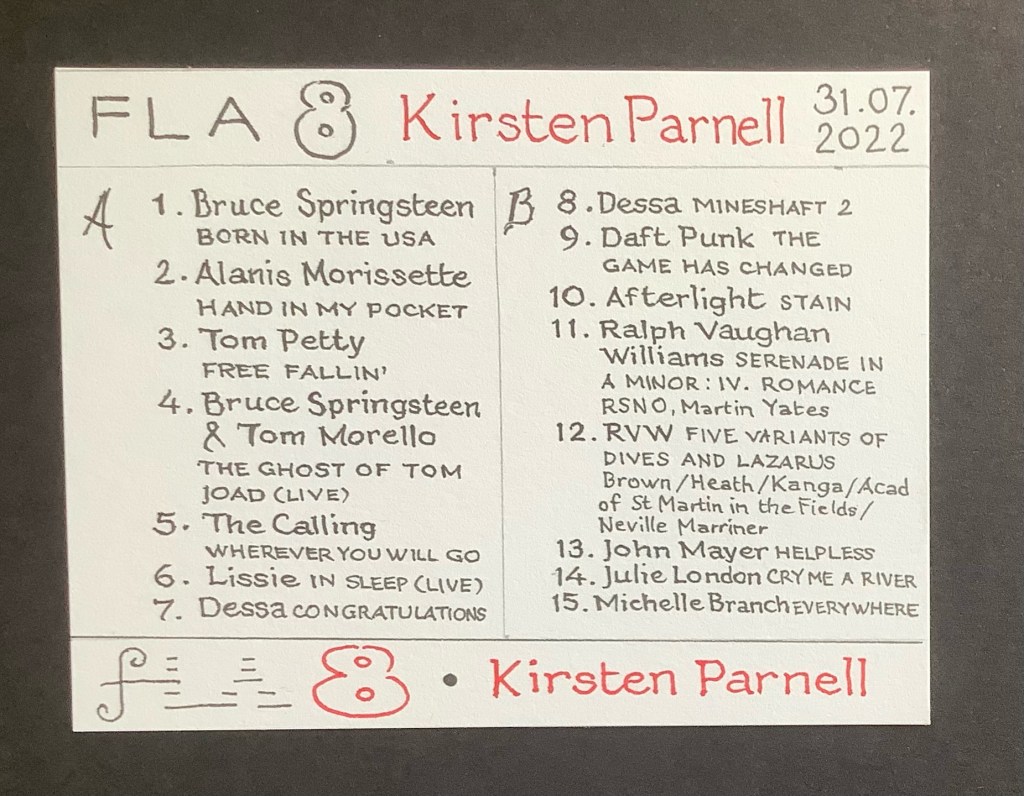 FLA 8 Kirsten Parnell 31.07.
2022
A
1. Bruce Springsteen
BORN IN THE USA
2. Alanis Morissette
HAND IN MY POCKET
3. Tom Petty
FREE FALLIN'
4. Bruce Springsteen
& Tom Morello
THE GHOST OF TOM
JOAD (LIVE)
5. The Calling
WHEREVER YOU WILL GO
6. Lissie IN SLEEP (LIVE)
7. Dessa CONGRATULATIONS
B
8. Dessa MINESHAFT 2
9. Daft Punk THE
GAME HAS CHANGED
10. Afterlight STAIN
11. Ralph Vaughan
Williams SERENADE IN
A MINOR: IV. ROMANCE
RSNO, Martin Yates
12. RVW FIVE VARIANTS OF
DIVES AND LAZARUS
Brown/Heath/Kanga/Acad
of St Martin in the Fields/
Neville Marriner
13. John Mayer HELPLESS
14. Julie London CRY ME A RIVER
15. Michelle Branch EVERYWHERE
FLA 8 • Kirsten Parnell